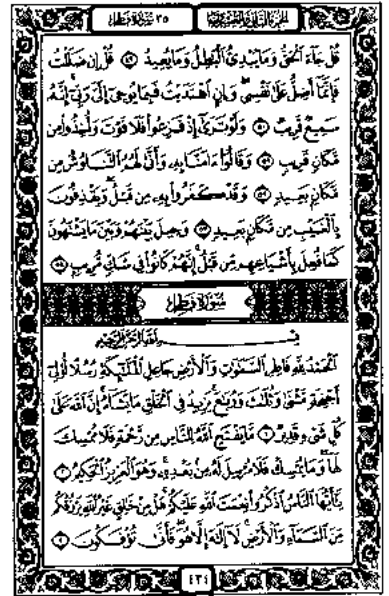 الجزء الثاني والعشرون
٣٥ سورة فاطر
قُلْ جَآءَ ٱلْحَقُّ وَمَا يُبْدِئُ ٱلْبَٰطِلُ وَمَا يُعِيدُ ٤٩ قُلْ إِن ضَلَلْتُ
فَإِنَّمَآ أَضِلُّ عَلَىٰ نَفْسِى وَإِنِ ٱهْتَدَيْتُ فَبِمَا يُوحِىٓ إِلَىَّ رَبِّىٓ إِنَّهُۥ
سَمِيعٌ قَرِيبٌ ٥٠ وَلَوْ تَرَىٰٓ إِذْ فَزِعُوا۟ فَلَا فَوْتَ وَأُخِذُوا۟ مِن
مَّكَانٍ قَرِيبٍ ٥١ وَقَالُوٓا۟ ءَامَنَّا بِهِۦ وَأَنَّىٰ لَهُمُ ٱلتَّنَاوُشُ مِن
مَّكَانٍۭ بَعِيدٍ ٥٢ وَقَدْ كَفَرُوا۟ بِهِۦ مِن قَبْلُ وَيَقْذِفُونَ
بِٱلْغَيْبِ مِن مَّكَانٍۭ بَعِيدٍ ٥٣ وَحِيلَ بَيْنَهُمْ وَبَيْنَ مَا يَشْتَهُونَ
كَمَا فُعِلَ بِأَشْيَاعِهِم مِّن قَبْلُ إِنَّهُمْ كَانُوا۟ فِى شَكٍّ مُّرِيبٍ ٥٤
سورة فاطر
بِسْمِ ٱللَّهِ ٱلرَّحْمَٰنِ ٱلرَّحِيمِ
ٱلْحَمْدُ لِلَّهِ فَاطِرِ ٱلسَّمَٰوَٰتِ وَٱلْأَرْضِ جَاعِلِ ٱلْمَلَٰٓئِكَةِ رُسُلًا أُو۟لِىٓ
أَجْنِحَةٍ مَّثْنَىٰ وَثُلَٰثَ وَرُبَٰعَ يَزِيدُ فِى ٱلْخَلْقِ مَا يَشَآءُ إِنَّ ٱللَّهَ عَلَىٰ
كُلِّ شَىْءٍ قَدِيرٌ ١ مَّا يَفْتَحِ ٱللَّهُ لِلنَّاسِ مِن رَّحْمَةٍ فَلَا مُمْسِكَ
لَهَا وَمَا يُمْسِكْ فَلَا مُرْسِلَ لَهُۥ مِنۢ بَعْدِهِۦ وَهُوَ ٱلْعَزِيزُ ٱلْحَكِيمُ ٢
يَٰٓأَيُّهَا ٱلنَّاسُ ٱذْكُرُوا۟ نِعْمَتَ ٱللَّهِ عَلَيْكُمْ هَلْ مِنْ خَٰلِقٍ غَيْرُ ٱللَّهِ يَرْزُقُكُم
مِّنَ ٱلسَّمَآءِ وَٱلْأَرْضِ لَآ إِلَٰهَ إِلَّا هُوَ فَأَنَّىٰ تُؤْفَكُونَ ٣
٤٣٤